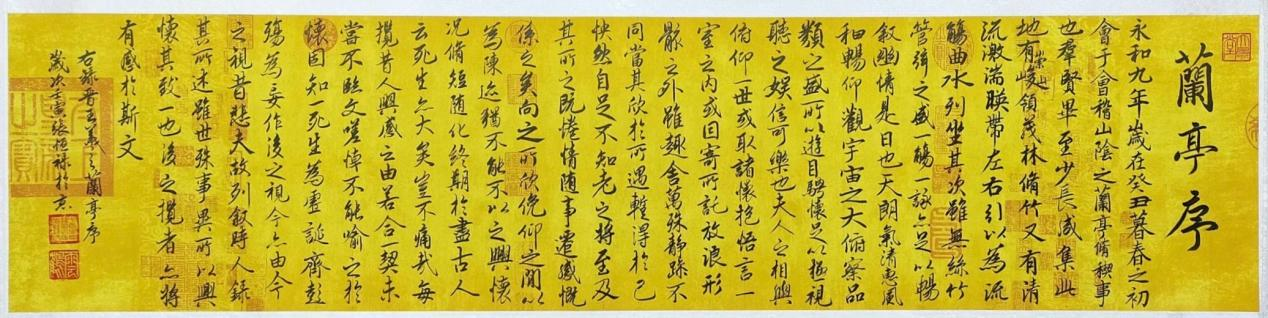 蘭亭序
永和九年歲在癸丑暮春之初
會于會稽山陰之蘭亭脩稧事
也羣賢畢至少長咸集此
地有崇山峻領茂林脩竹又有清
流激湍暎帶左右引以為流
觴曲水列坐其次雖無絲竹
管絃之盛一觴一詠亦足以暢
敘幽情是日也天朗氣清惠風
和暢仰觀宇宙之大俯察品
類之盛所以遊目騁懷足以極視
聽之娛信可樂也夫人之相與
俯仰一世或取諸懷抱悟言一
室之內或因寄所託放浪形
骸之外雖趣舍萬殊靜躁不
同當其欣於所遇蹔得於己
怏然自足不知老之將至及
其所之既惓情隨事遷感慨
係之矣向之所欣俛仰之閒以
為陳迹猶不能不以之興懷
況脩短隨化終期於盡古人
云死生亦大矣豈不痛哉每
攬昔人興感之由若合一契未
甞不臨文嗟悼不能喻之於
懷固知一死生為虛誕齊彭
殤為妄作後之視今亦由今
之視昔悲夫故列敘時人錄
其所述雖世殊事異所以興
懷其致一也後之攬者亦將
有感於斯文
右錄晉王羲之蘭亭序
歲次壬寅張恒祿於京